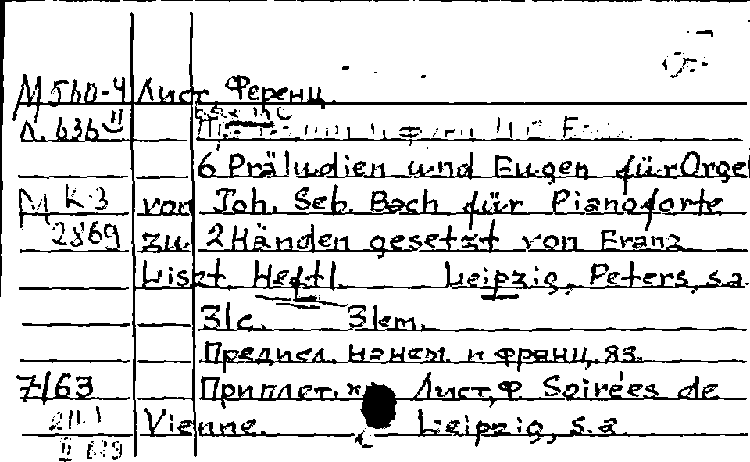 М 560-4 Лист, Ференц.
Л. 636 II
6 Präludien und Fugen für Orgel
М К-3 von Joh. Seb. Bach für Pianoforte
2869 zu 2 Händen gesetzt von Franz
Liszt. Heft I. Leipzig, Peters, s.a.
31 с. 31 см.
Предисл. на нем. и франц. яз.
7/63 Приплет. к: Лист, Ф. Soirées de
Vienne. Leipzig, s.a.